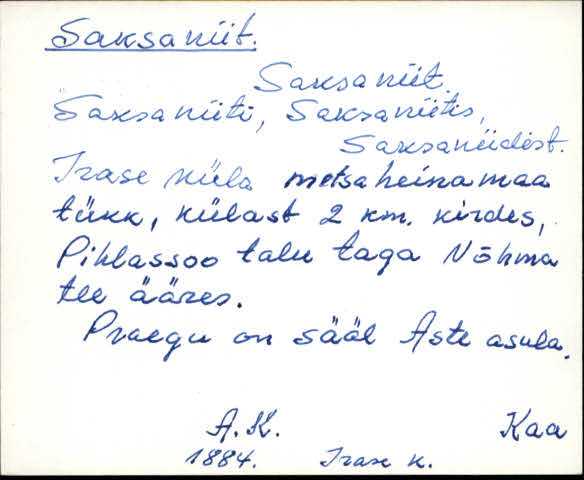 Saksaniit.
Saksaniit.
Saksaniiti, Saksaniitis,
Saksaniidist.
Irase küla metsaheinamaa
tükk, külast 2 km. kirdes,
Pihlassoo talu taga Nõhma
tee ääres.
Praegu on sääl Aste asula.
A.K. Kaa
1884. Irase k.